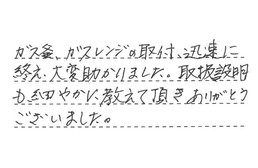 ガス釜、ガスレンジの取付、迅速に
終え、大変助かりました。取扱説明
も細やかに教えて頂きありがとう
ございました。